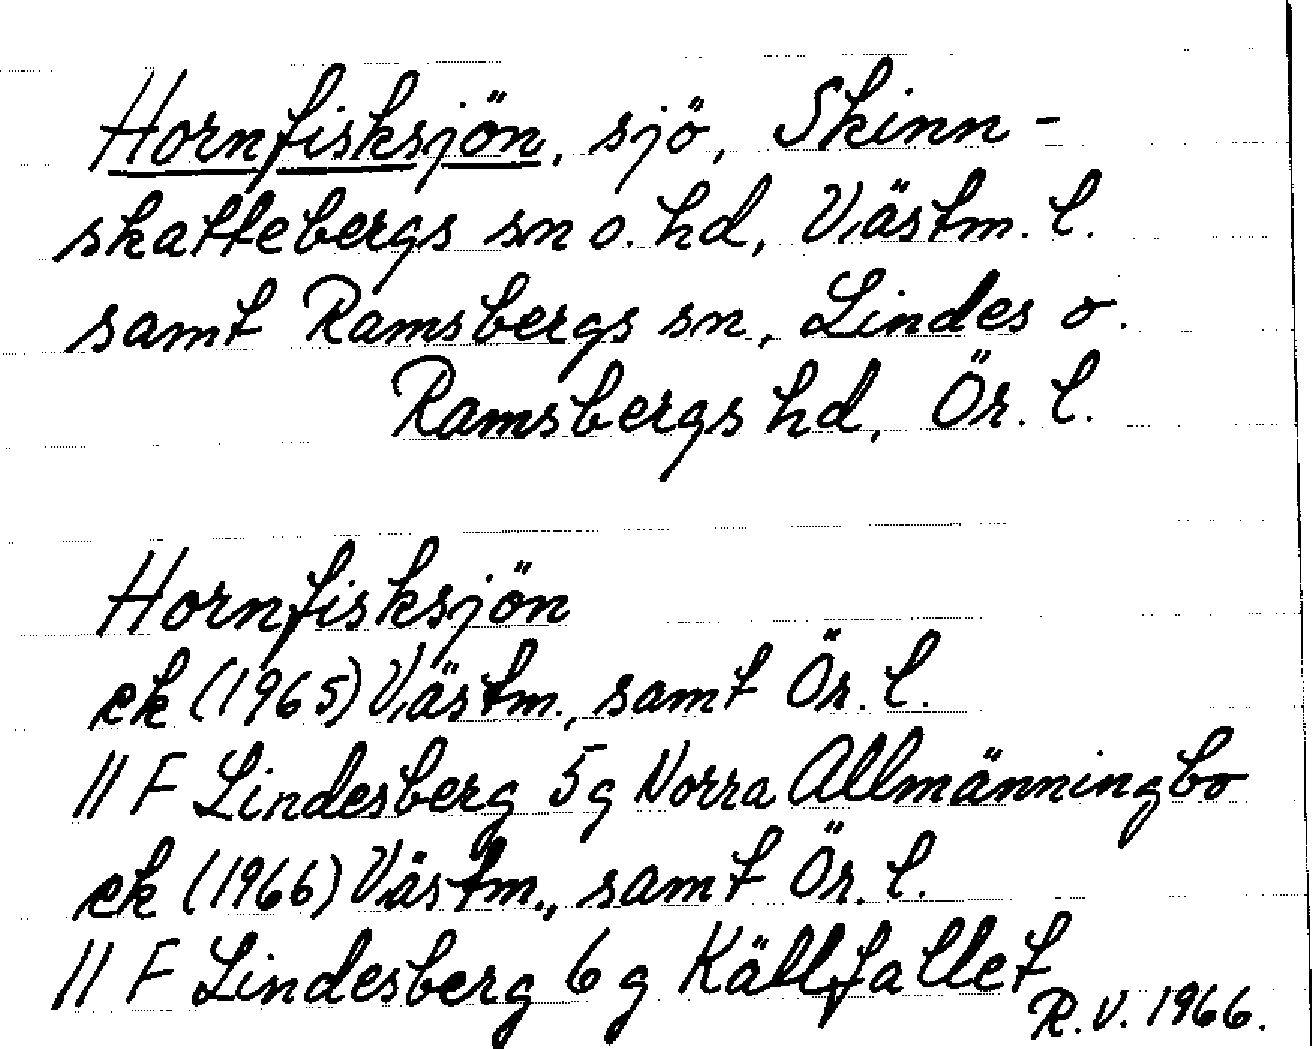 Hornfisksjön, sjö, Skinn-
skattebergs sn o. hd, Västm. l.
samt Ramsbergs sn, Lindes o.
Ramsbergs hd, Ör. l.
Hornfisksjön
ek (1965) Västm., samt Ör. l.
11 F Lindesberg 5 g Norra Allmänningbo
ek (1966) Västm., samt Ör. l.
11 F Lindesberg 6 g Källfallet
R.V. 1966.